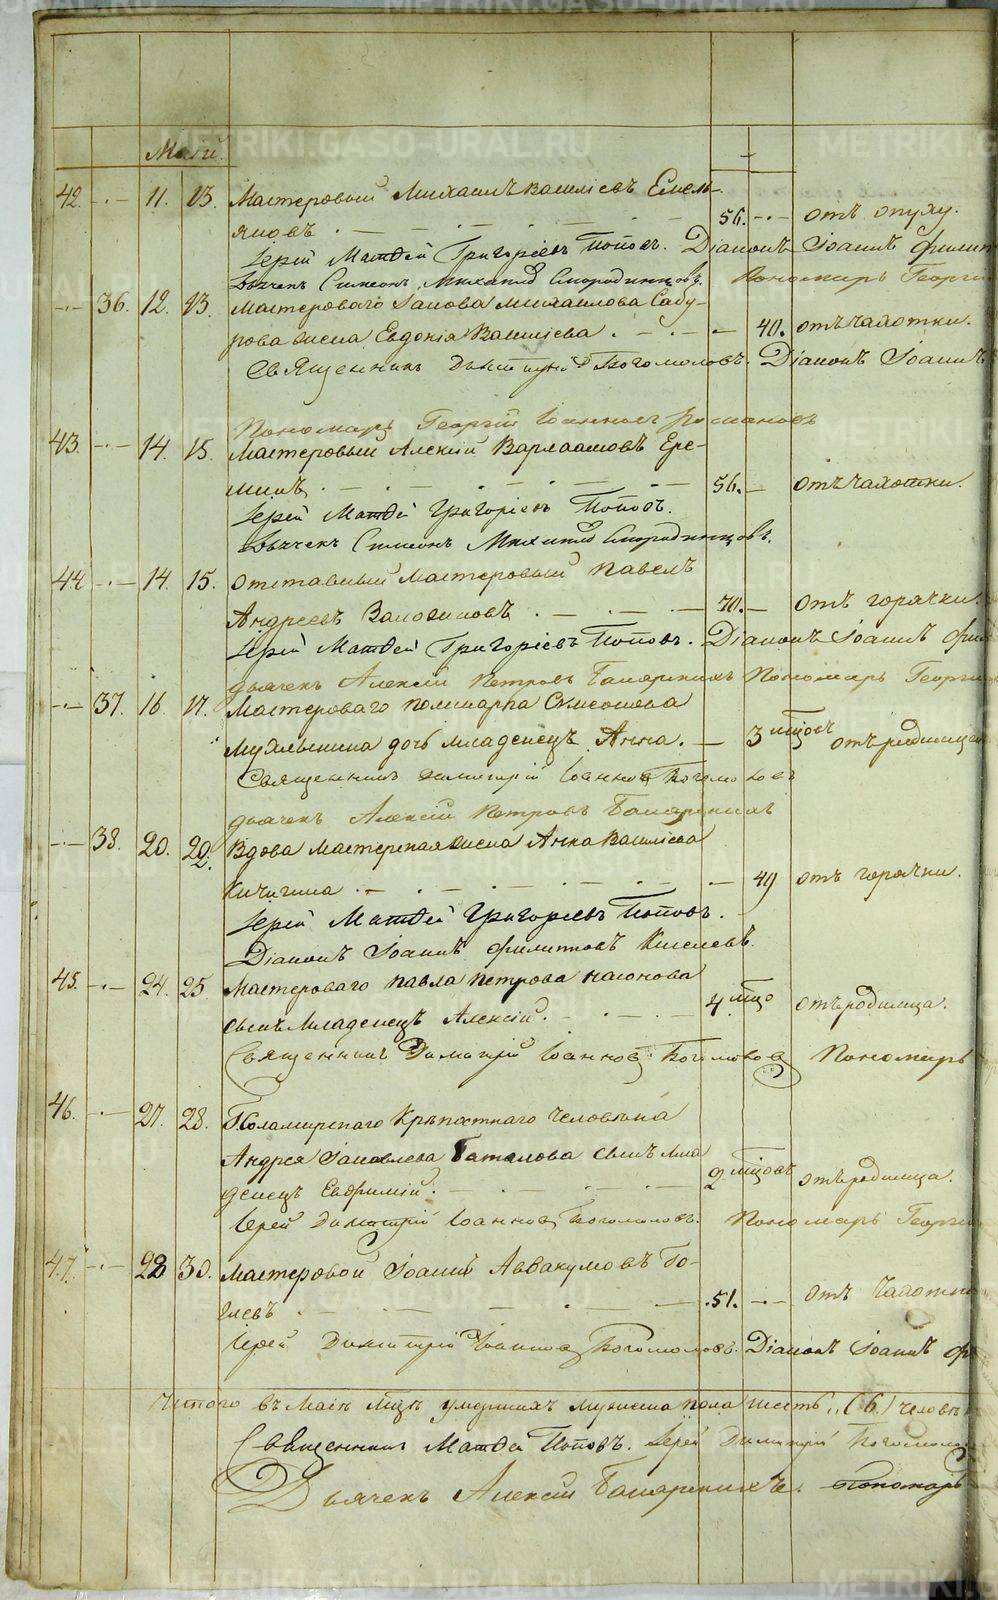 Май.
42. 11. 13. Мастеровый Михаилъ Василіевъ Емель-
яновъ . 56. отъ опуху.
Іерей Матѳей Григоріевъ Поповъ. Діаконъ Іоаннъ Филип
Дьячекъ Симеонъ Михаилов Смородинцовъ. Пономарь Георгі
36. 12. 13. Мастероваго Іакова Михаилова Сабу-
рова жена Евдокія Василіева . 40. отъ чахотки.
Священникъ Димитрій Богомоловъ. Діаконъ Іоаннъ
Пономарь Георгій Іоанновъ Романовъ
43. 14. 15. Мастеровый Алексій Варлаамовъ Ере-
минъ 56. отъ чахотки.
Іерей Матѳей Григоріевъ Поповъ.
Дьячекъ Симеонъ Михаилов Смородинцовъ.
44. 14. 15. отставный мастеровый Павелъ
Андреевъ 70. отъ горячки.
Іерей Матѳей Григоріевъ Поповъ. Діаконъ Іоаннъ Фил
дьячекъ Алексій Петровъ Пономарь Георгі
37. 16. 17. Мастероваго Поликарпа Симеонова
дочь младенецъ Анна. 3 мцовъ отъ родимца
Священникъ Димитрій Іоаннов Богомоловъ
дьячекъ Алексій Петровъ
38. 20. 22. Вдова мастерская жена Анна Василіева
Кичигина . 49 отъ горячки.
Іерей Матѳей Григорьевъ Поповъ.
Діаконъ Іоаннъ Филипповъ Киселевъ.
45. 24. 25 Мастероваго Павла Петрова
сынъ младенецъ Алексій. 4. мцо отъ родимца.
Священникъ Димитрій Іоаннов Богомолов Пономарь
46. 27. 28. Г. Соламирскаго крѣпостнаго человѣка
Андрея Іаковлева Баталова сынъ мла
денецъ Евфимій. 2 мцовъ отъ родимца.
Іерей Димитрій Іоаннов Богомоловъ. Пономарь Георгі
47. 28 30. Мастеровой Іоаннъ Аввакумовъ Го-
.51. отъ чахотки
Іерей Димитрій Іоаннов Богомоловъ. Діаконъ Іоаннъ Ф
Итого въ Маіѣ мцѣ умершихъ мужеска пола шесть, (6.) человѣкъ
Священникъ Матѳей Поповъ. Іерей Димитрій Богомолов
Дьячекъ Алексій Пономарь
METRIKI.GASO-URAL.RU